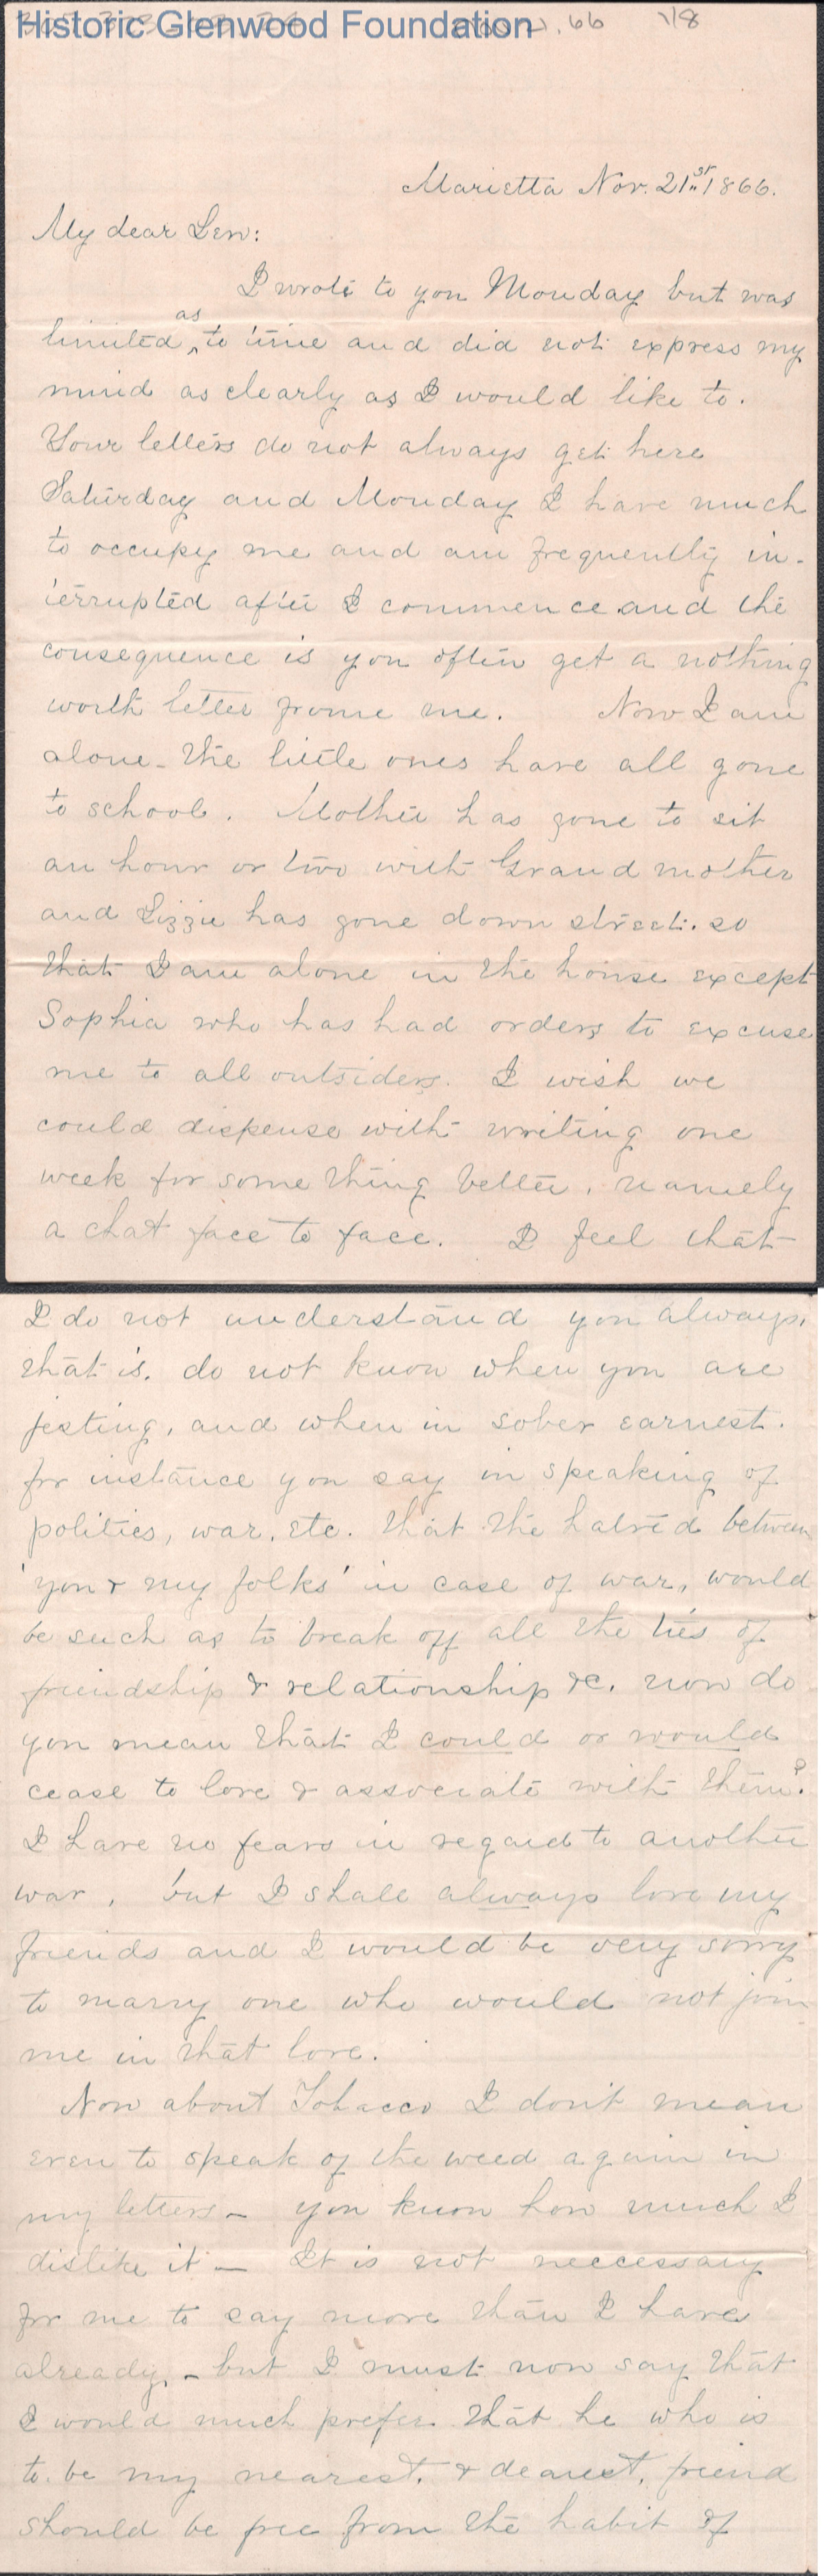 Historic Glenwood Foundation
.66 1/8
Marietta Nov. 21st 1866.
My dear Lew:
I wrote to you Monday but was
as
limited ^ to time and did not express my
mind as clearly as I would like to.
Your letters do not always get here
Saturday and Monday I have much
to occupy me and am frequently in-
terrupted after I commence and the
consequence is you often get a nothing
worth letter frome me. Now I am
alone - the little ones have all gone
to school. Mother has gone to sit
an hour or two with Grand mother
and Lizzie has gone down street. so
that I am alone in the house except
Sophia who has had orders to excuse
me to all outsiders. I wish we
could dispense with writing one
week for some thing better, namely
a chat face to face. I feel that
I do not understand you always,
that is. do not know when you are
jesting, and when in sober earnest.
for instance you say in speaking of
politics, war, etc. that the hatred between
'you & my folks' in case of war, would
be such as to break off all the ties of
friendship & relationship &c. now do
you mean that I could or would
cease to love & associate with them?
I have no fears in regard to another
war, but I shall always love my
friends and I would be very sorry
to marry one who would not join
me in that love.
Now about Tobacco I don't mean
even to speak of the weed again in
my letters - you know how much I
dislike it - It is not neccessary
for me to say more than I have
already, - but I must now say that
I would much prefer that he who is
to be my nearest, & dearest, friend
should be free from the habit of